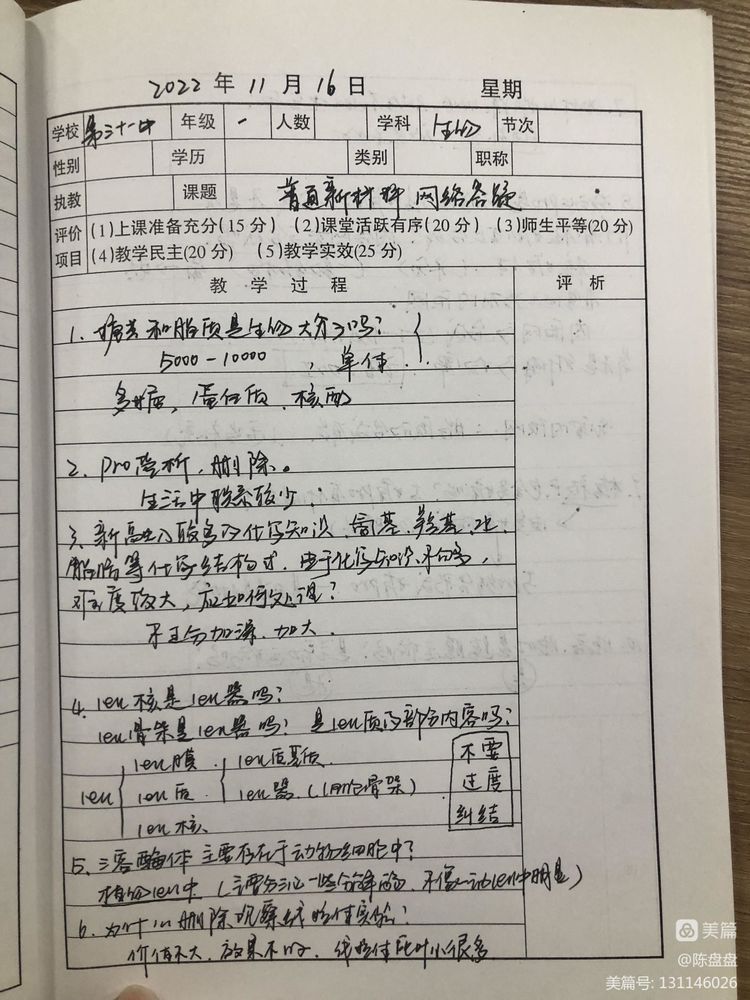 2022 年 11 月 16 日 星期
学校 第三十一中 年级 一 人数 学科 生物 节次
性别 学历 类别 职称
执教 课题 普通新材料 网络答疑
评价项目 (1)上课准备充分(15 分) (2)课堂活跃有序(20 分) (3)师生平等(20 分)
(4)教学民主(20 分) (5)教学实效(25 分)
教 学 过 程 评 析
1. 糖类和脂质是生物大分子吗?
5000-10000 , 单体
多糖, 蛋白质, 核酸
2. pro 删除。
生活中联系较少
3. 新高一 较多及化学知识, 羧基,
脂肪等化学结构式, 由于化学知识不够多,
难度较大, 应如何处理?
不至会加深, 加大.
4. ien核是ien器吗?
ien骨架是ien器吗? 是ien质的部分内容吗?
ien膜 ien质基质
ien ien质 ien器 (细胞骨架)
ien核
不要
过度
纠结
5. 溶酶体主要存在于动物细胞中?
植物ien中 (主要分泌一些分解酶, 不像动ien中明显)
6. 为什么删除观察线粒体实验?
价值不大, 效果不好, 线粒体比叶小很多
美篇
@陈盘盘
美篇号: 131146026